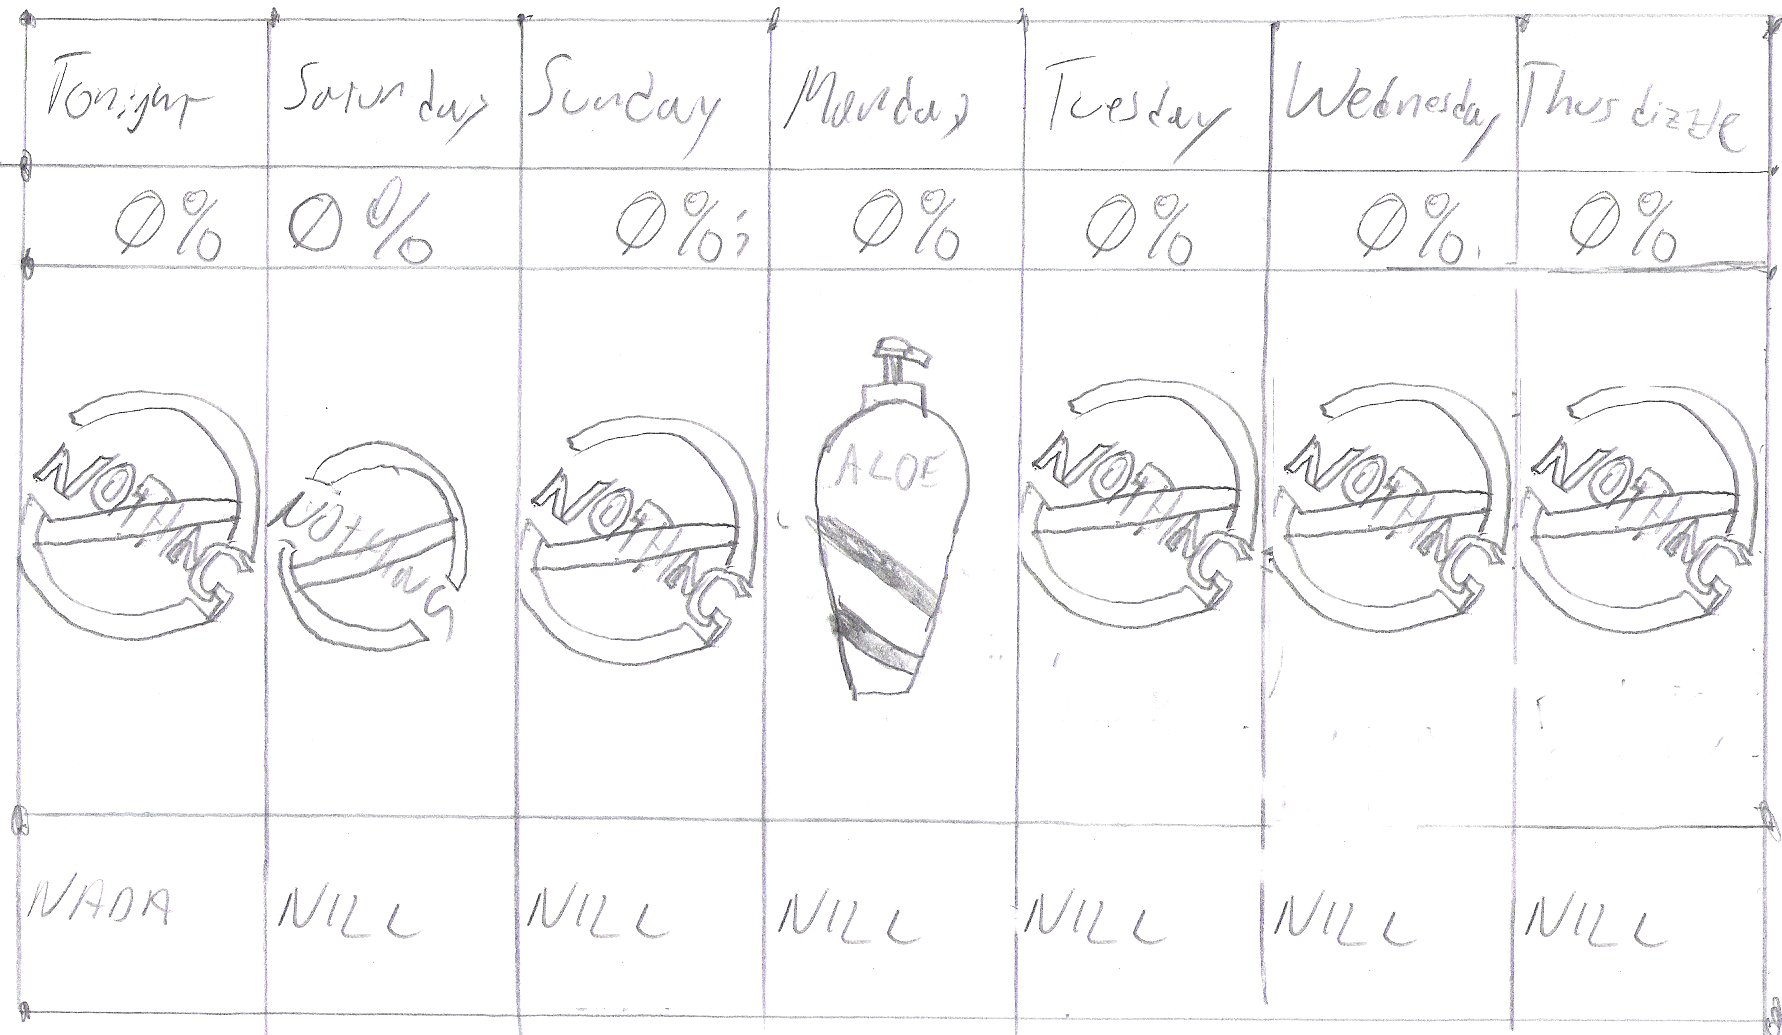 Tonight Saturday Sunday Monday Tuesday Wednesday Thusdizzle
0% 0% 0% 0% 0% 0% 0%
NOTHING NOTHING NOTHING ALOE NOTHING NOTHING NOTHING
NADA NILL NILL NILL NILL NILL NILL